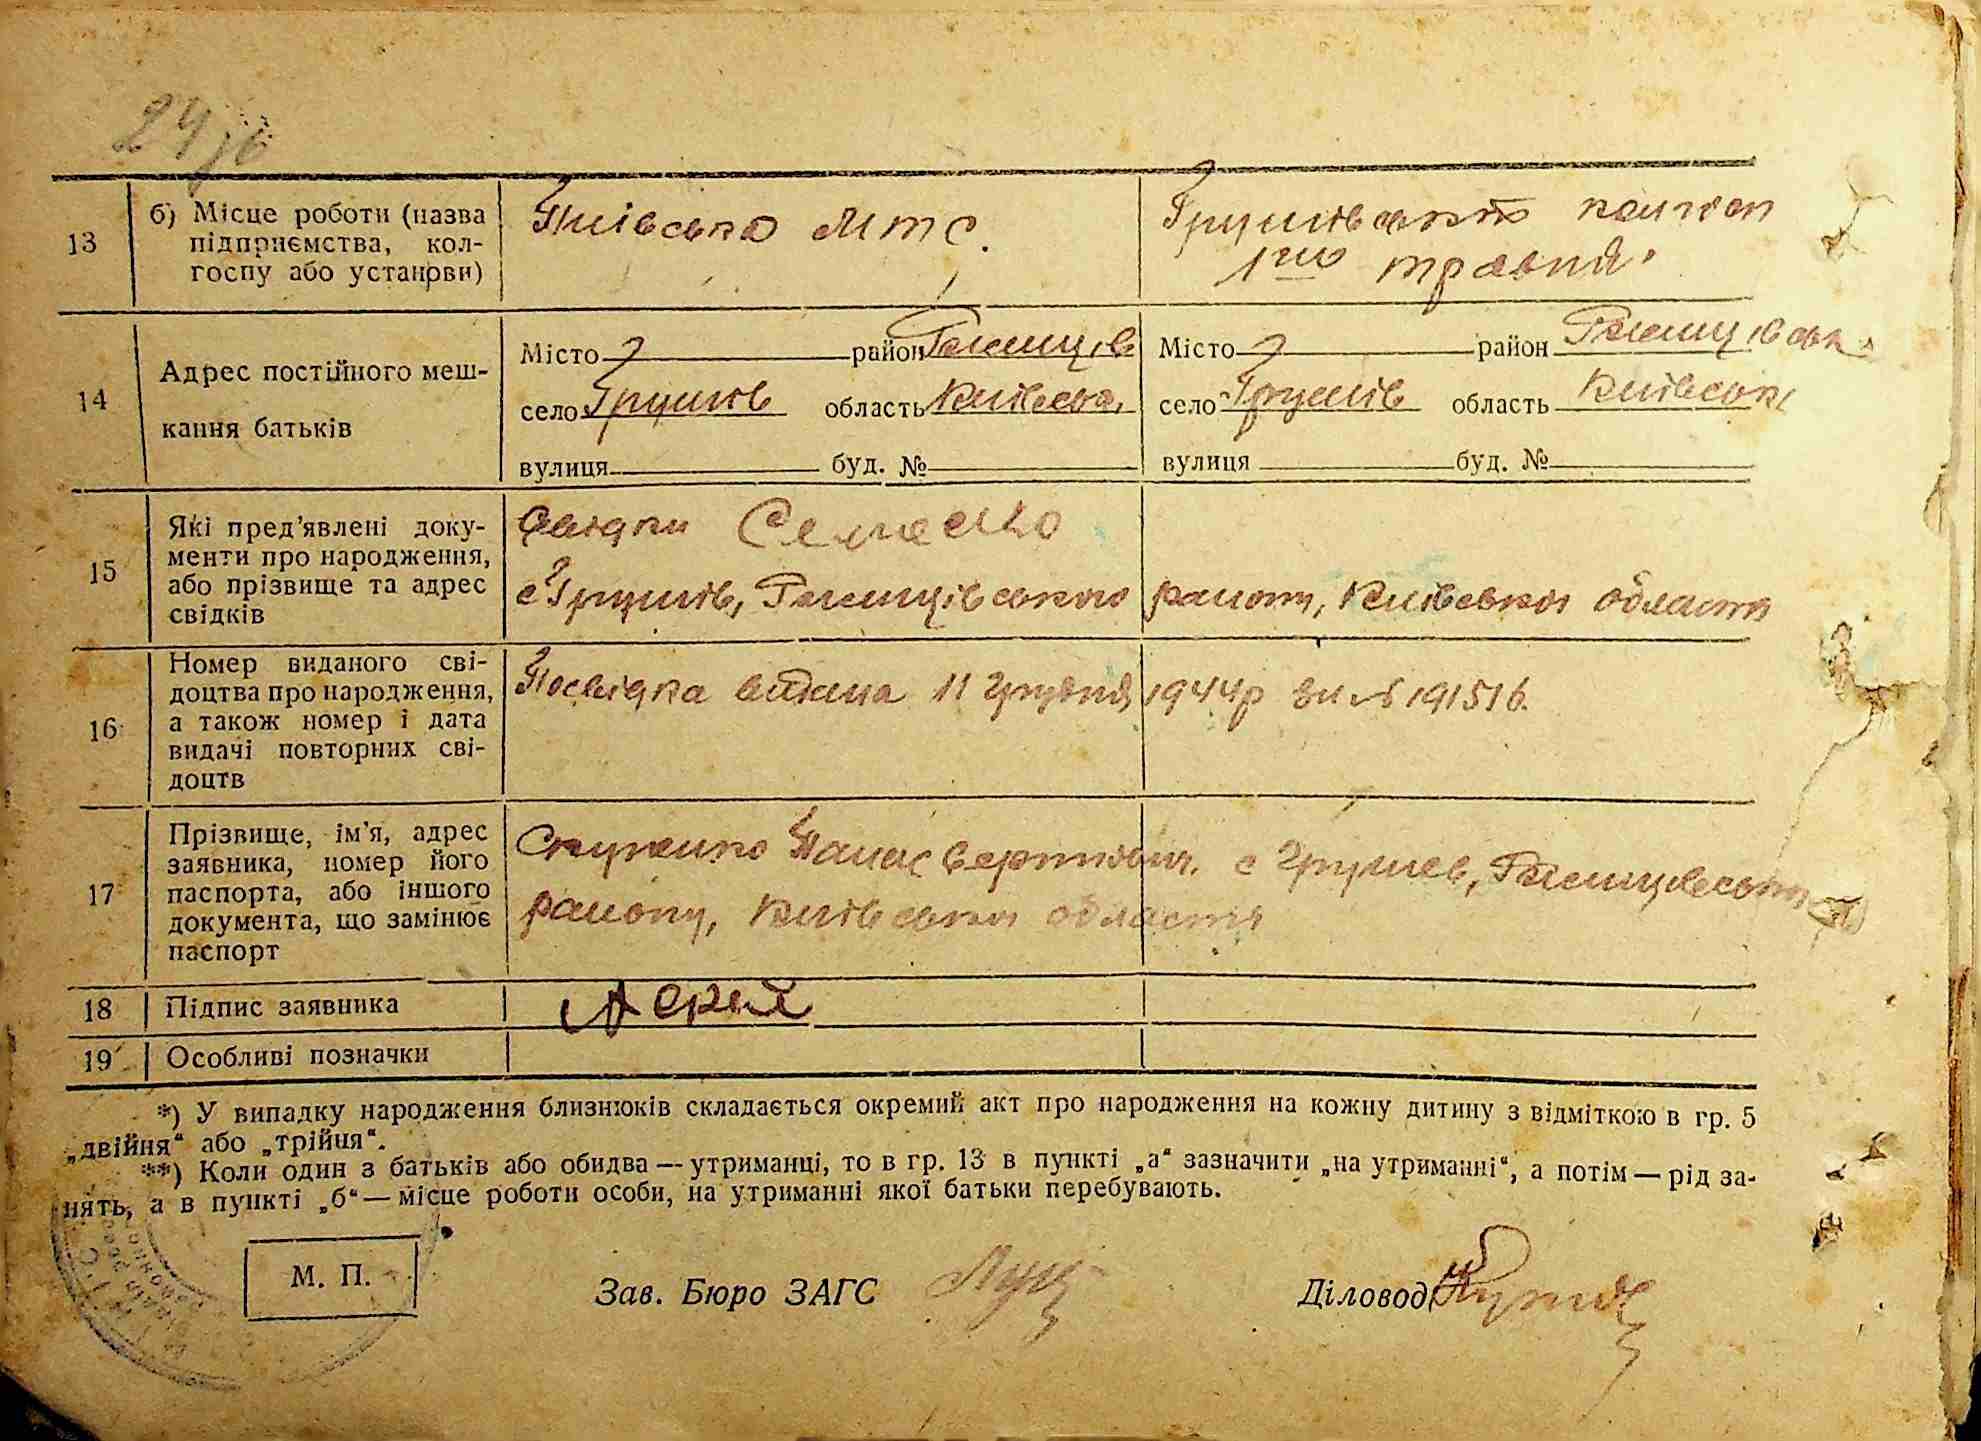 13
б) Місце роботи (назва
підприємства, кол-
госпу або установи)
МТС.
Грушівський колгосп
1го травня
14
Адрес постійного меш-
кання батьків
Місто район
село Грушів область Київська
вулиця буд. №
Місто район
село Грушів область Київська
вулиця буд. №
15
Які пред’явлені доку-
менти про народження,
або прізвище та адрес
свідків
Свідки
с Грушів, Ржищівського району, Київської області
16
Номер виданого сві-
доцтва про народження,
а також номер і дата
видачі повторних сві-
доцтв
Посвідка видана 11 грудня 1944р за № 191516.
17
Прізвище, ім’я, адрес
заявника, номер його
паспорта, або іншого
документа, що замінює
паспорт
Панас с Грушев, Ржищевського
району, Київської області
18
Підпис заявника
19
Особливі позначки
*) У випадку народження близнюків складається окремий акт про народження на кожну дитину з відміткою в гр. 5
„двійня“ або „трійня“.
**) Коли один з батьків або обидва — утриманці, то в гр. 13 в пункті „а“ зазначити „на утриманні“, а потім — рід за-
нять, а в пункті „б“ — місце роботи особи, на утриманні якої батьки перебувають.
М. П.
Зав. Бюро ЗАГС
Діловод